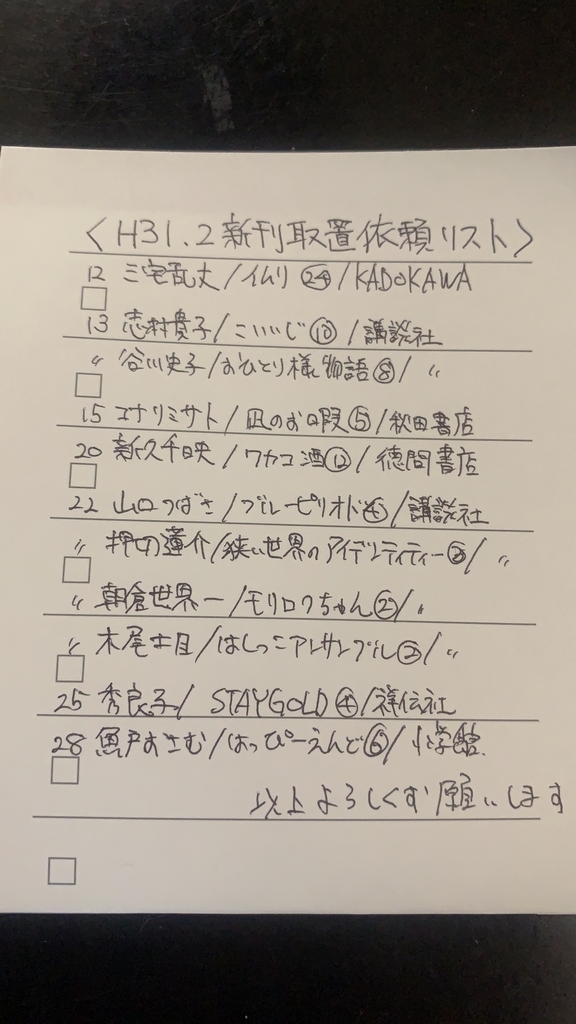 <H31.2新刊取置依頼リスト>
12 三宅乱丈/イムリ㉔/KADOKAWA
13 志村貴子/こいいじ⑩/講談社
〃 谷川史子/おひとり様物語⑧/〃
15 コナリミサト/凪のお暇⑤/秋田書店
20 新久千映/ワカコ酒⑫/徳間書店
22 山口つばさ/ブルーピリオド④/講談社
〃 押切蓮介/狭い世界のアイデンティティー③/〃
〃 朝倉世界一/モリロクちゃん②/〃
〃 木尾士目/はしっこアンサンブル②/〃
25 秀良子/STAYGOLD④/祥伝社
28 魚戸おさむ/はっぴーえんど⑥/小学館
以上よろしくお願いします